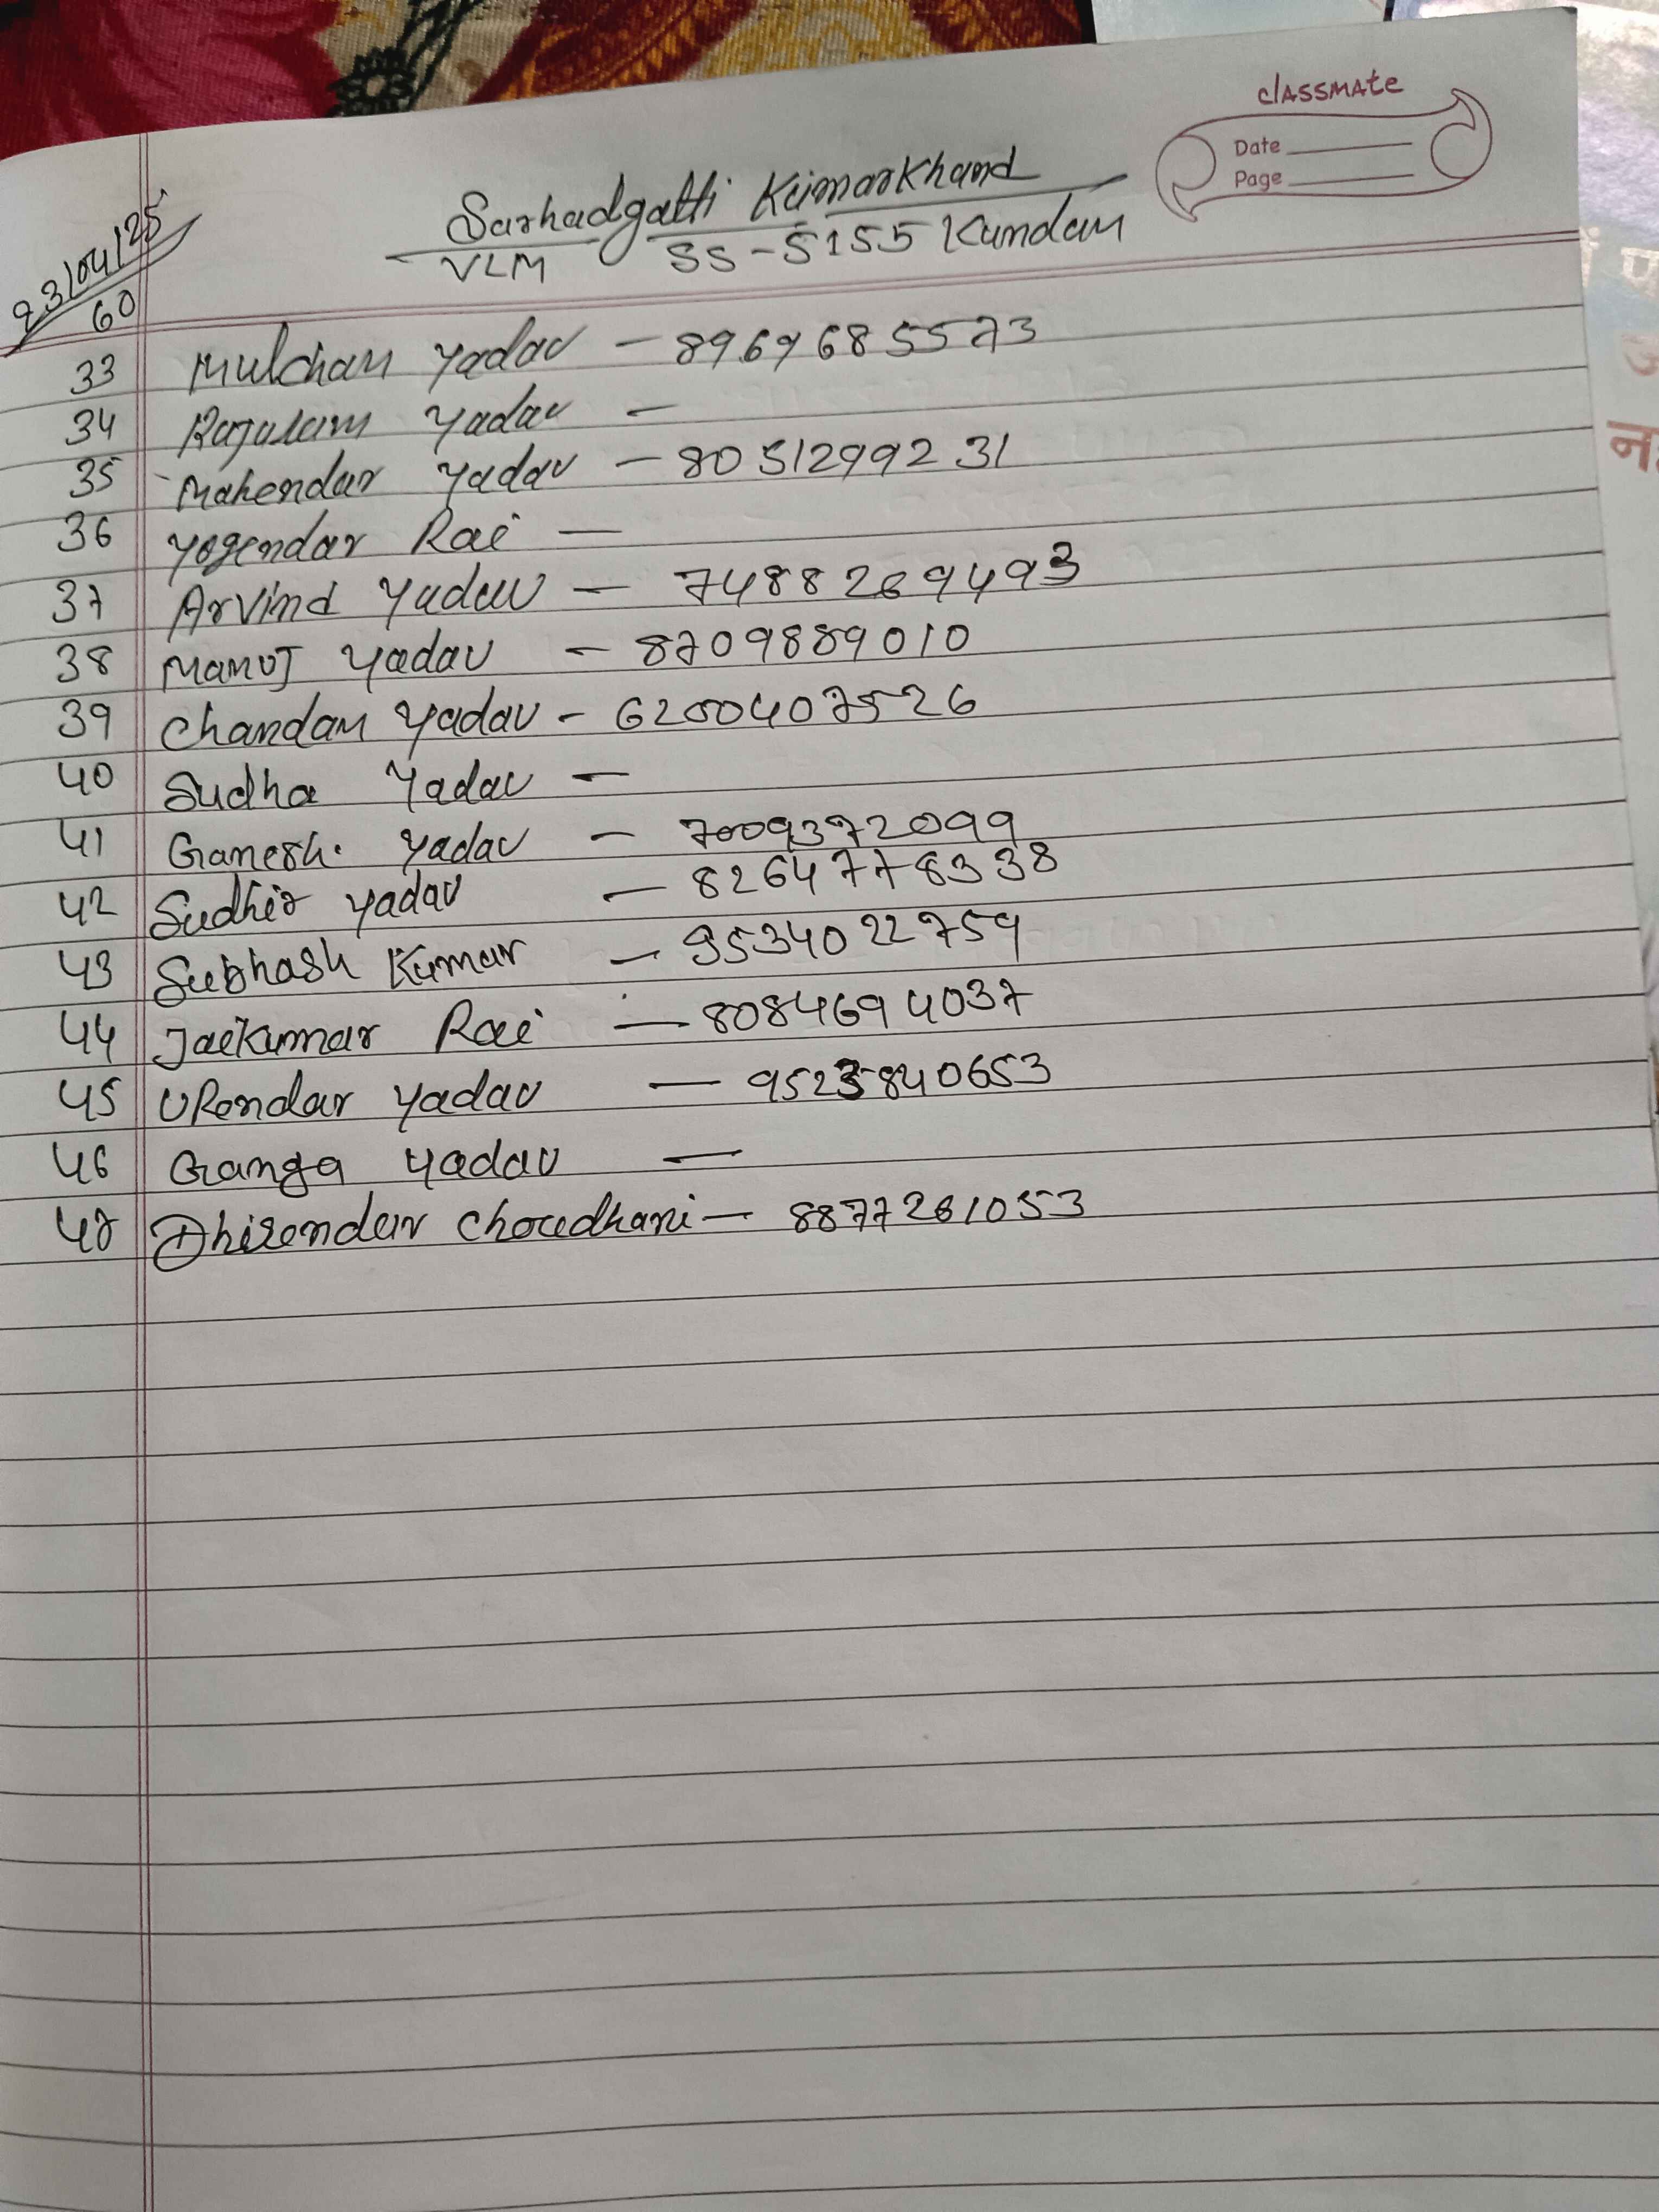 classmate
Date
Page
23/04/25
60
Sarhadgatti Kumarkhand
VLM SS-5155 Kundan
33 Mulchan Yadav - 8969685573
34 Rajaram Yadav -
35 Mahendar Yadav - 8051299231
36 Yogendar Rai -
37 Arvind Yadav - 7488269493
38 Manoj Yadav - 8709889010
39 Chandan Yadav - 6200407526
40 Sudha Yadav -
41 Ganesh. Yadav - 7009372099
42 Sudhir Yadav - 8264778338
43 Subhash Kumar - 9534022759
44 Jaikumar Rai - 8084694037
45 Upendar Yadav - 9523840653
46 Ganga Yadav -
47 Dhirendar Choudhari - 8877261053